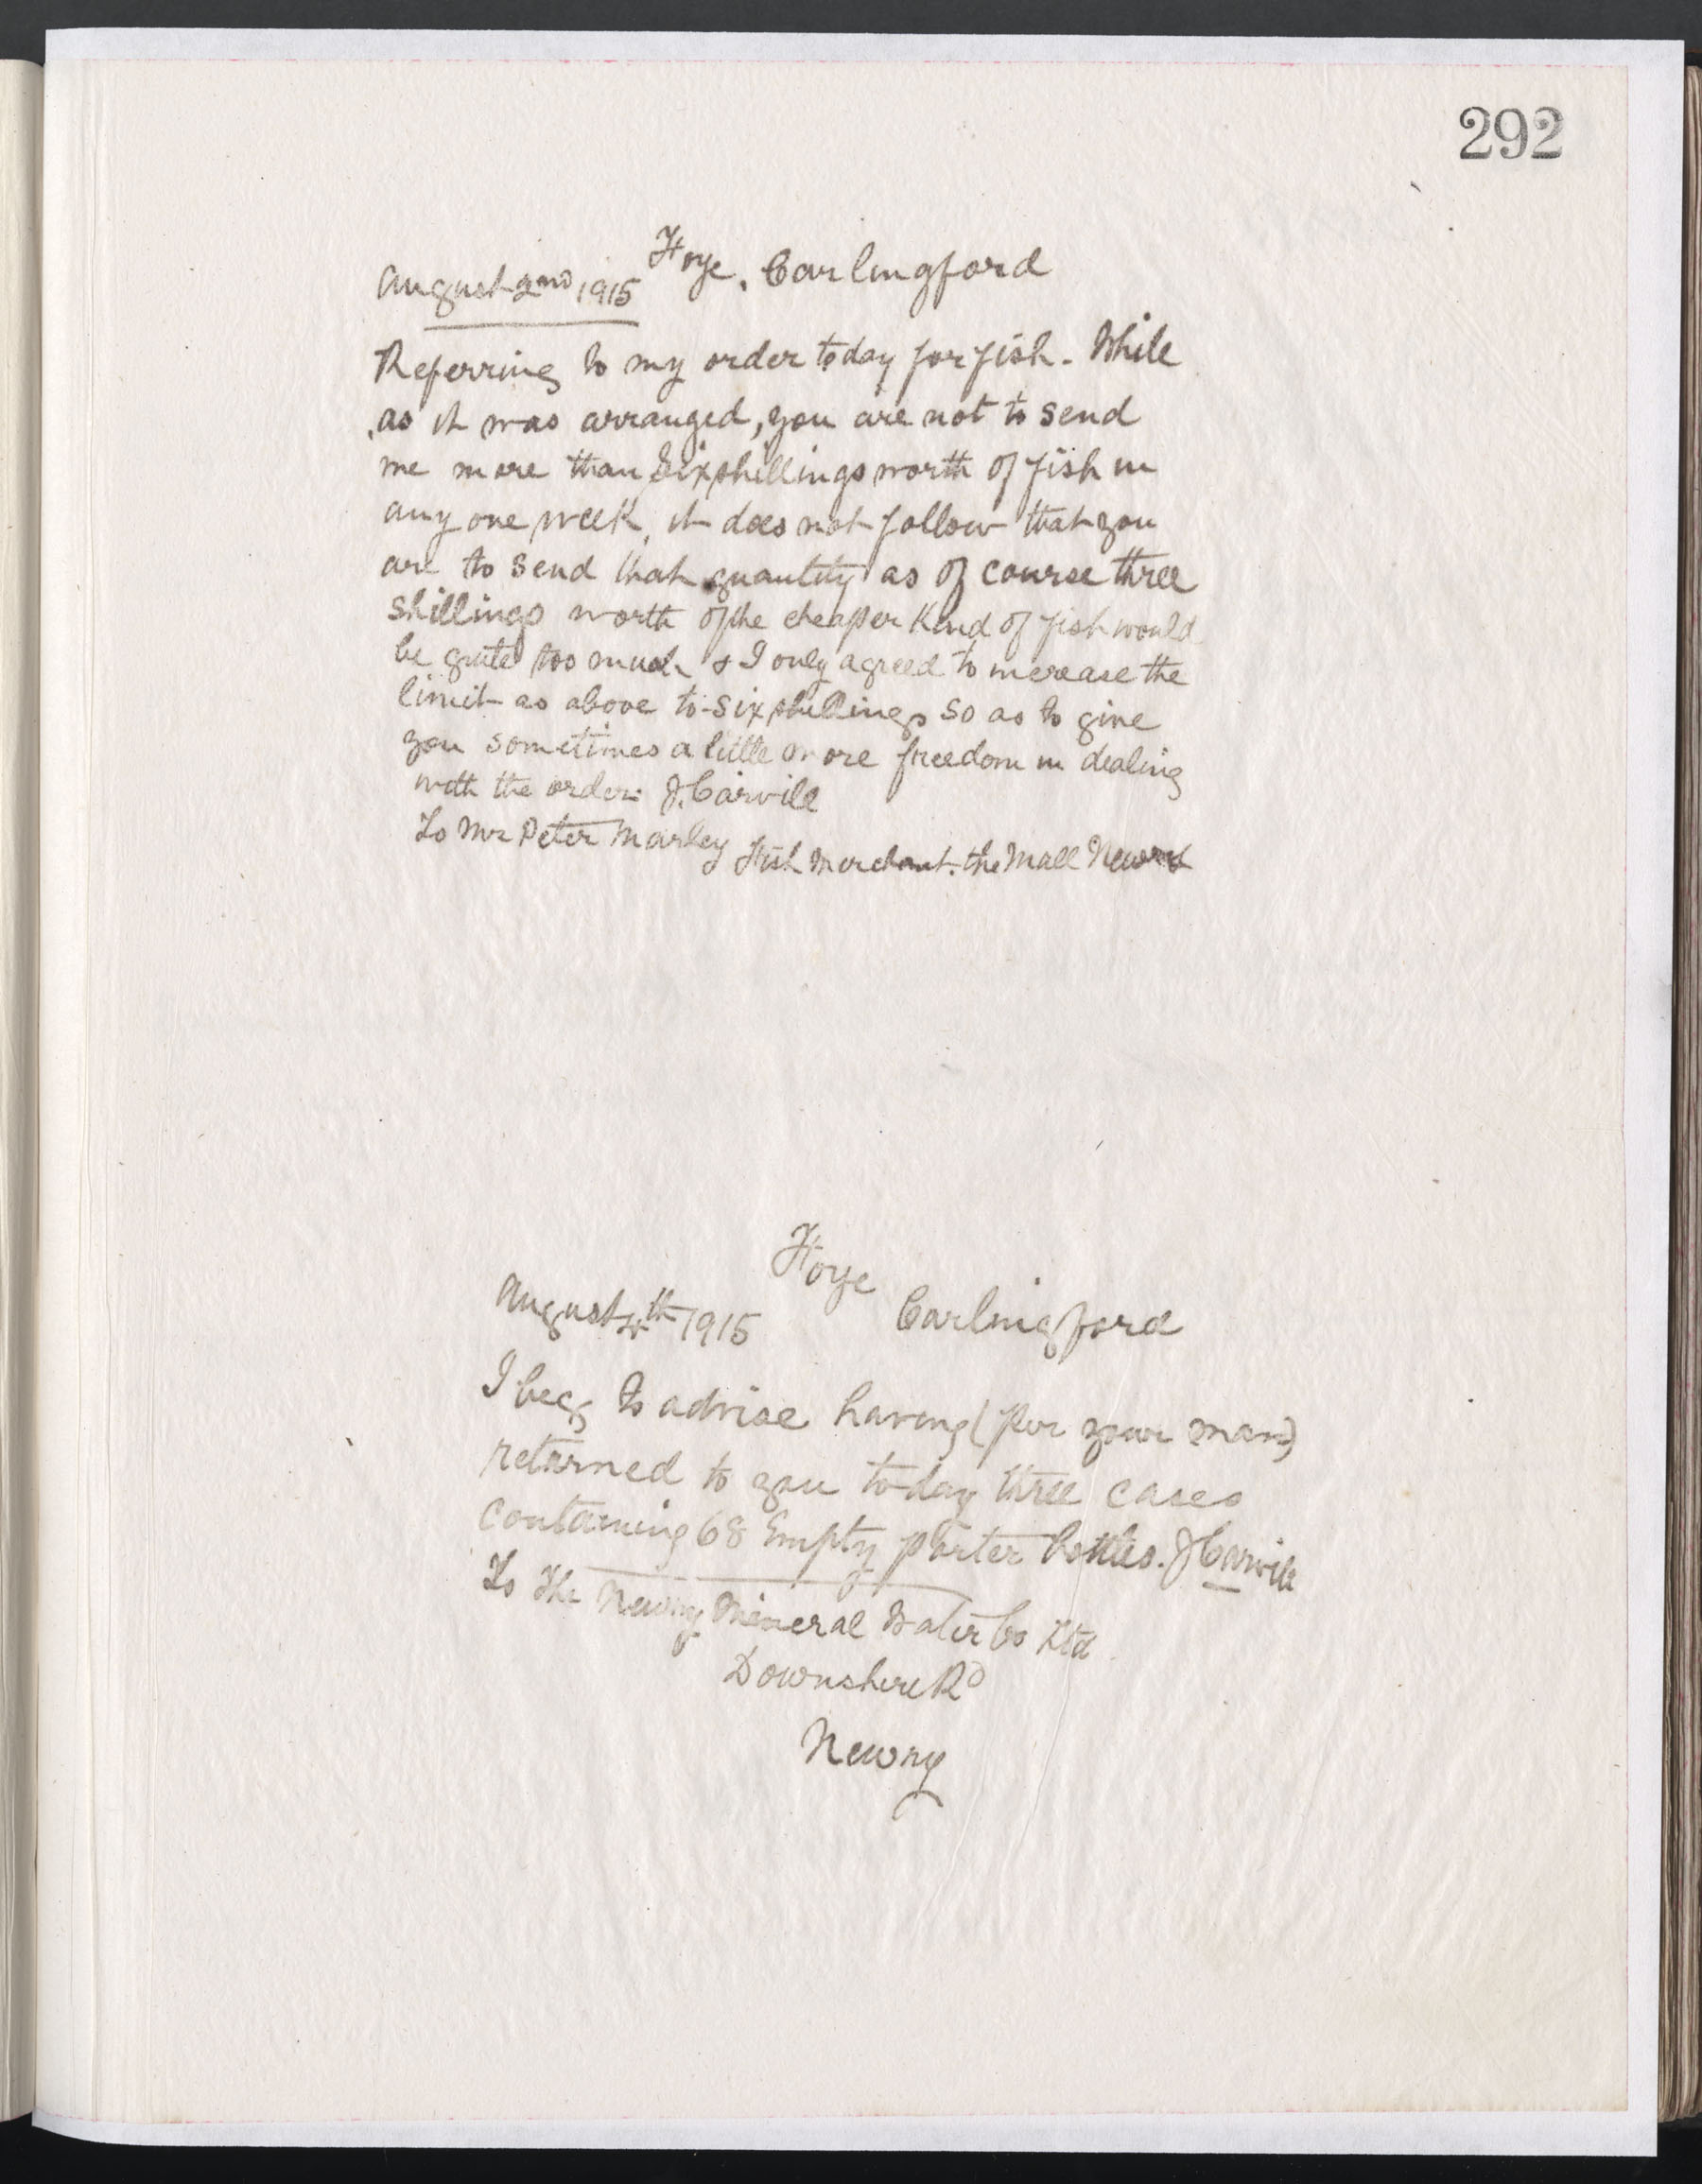 292
Foye, Carlingford
August 2nd 1915
Referring to my order today for fish. While
as it was arranged, you are not to send
me more than six shillings worth of fish in
any one week, it does not follow that you
are to send that quantity as of course three
shillings worth of the cheaper kind of fish would
be quite too much & I only agreed to increase the
limit as above to six shillings so as to give
you sometimes a little more freedom in dealing
with the order. J. Carvill
To Mr Peter Marley Fish Merchant. the Mall Newry
Foye
Carlingford
August 4th 1915
I beg to advise having (per your man)
returned to you to-day three cases
containing 68 Empty porter bottles. J Carvill
To The Newry Mineral Water Co Ltd
Downshire Rd
Newry